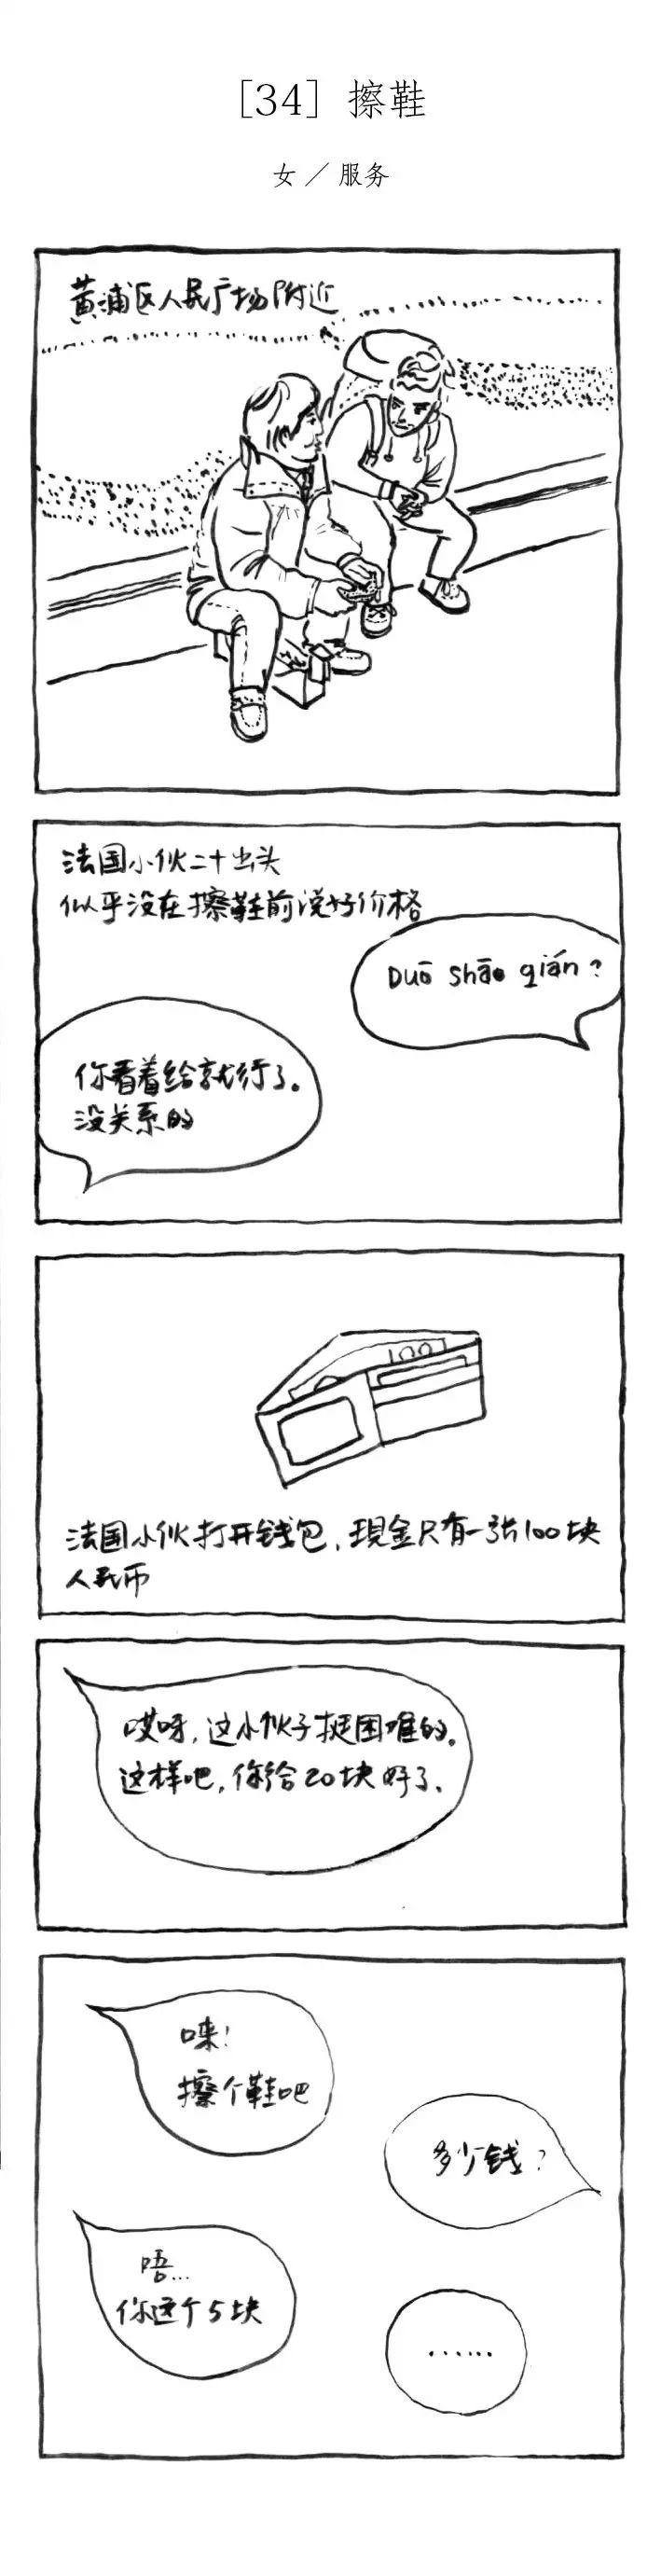 [34] 擦鞋
女／服务
黄浦区人民广场附近
法国小伙二十出头
似乎没在擦鞋前说好价格
Duō shāo qián?
你看着给就行了。
没关系的
100
法国小伙打开钱包，现金只有一张100块
人民币
哎呀，这小伙子挺困难的。
这样吧，你给20块好了、
唻！
擦个鞋吧
多少钱？
唔…
你这个5块
……